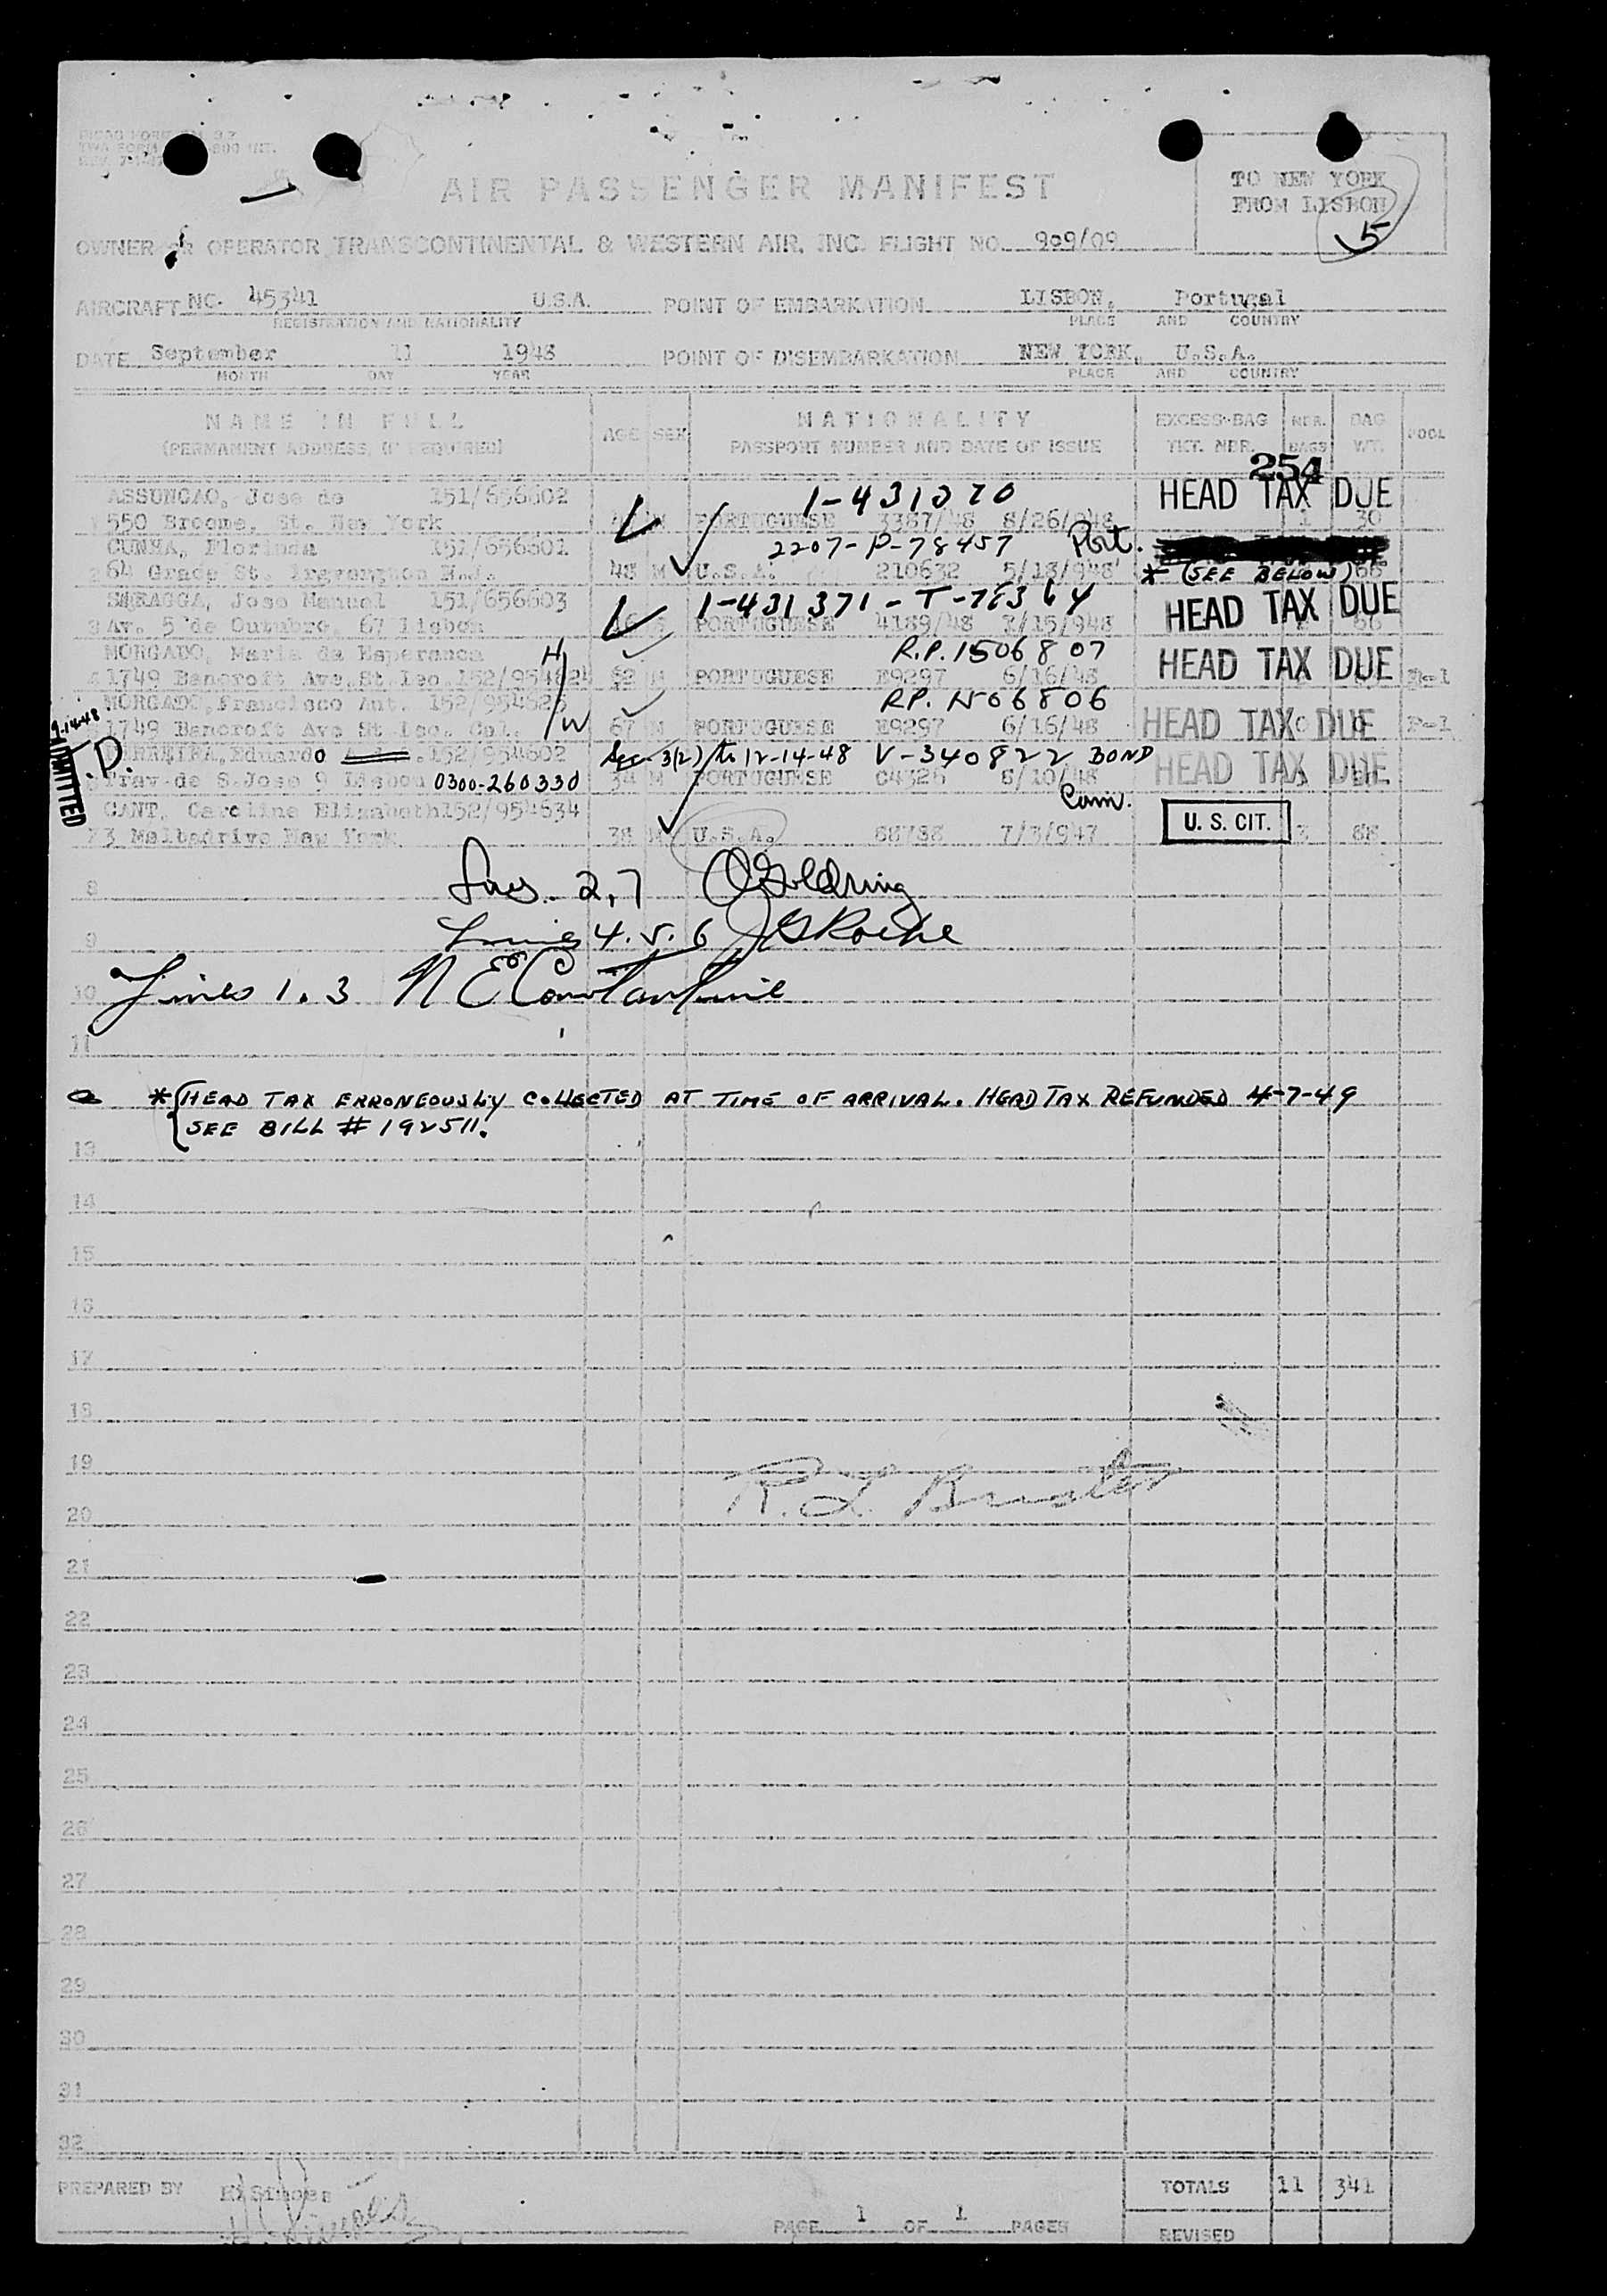 AIR PASSENGER MANIFEST
TO NEW YORK
FROM LISBON
5
OWNER OR OPERATOR TRANSCONTINENTAL & WESTERN AIR, INC. FLIGHT NO. 909/09
AIRCRAFT NC. 45341 U.S.A. POINT OF EMBARKATION LISBON, Portugal
REGISTRATION AND NATIONALITY PLACE AND COUNTRY
DATE September 11 1948 POINT OF DISEMBARKATION NEW YORK, U.S.A.
MONTH DAY YEAR PLACE AND COUNTRY
NAME IN FULL AGE SEX NATIONALITY EXCESS-BAG NBR. BAG POOL
(PERMANENT ADDRESS, IF REQUIRED) PASSPORT NUMBER AND DATE OF ISSUE TKT. NBR. BAGS WT.
254
ASSUNCAO, Jose de 151/656602 1-431370 HEAD TAX DUE
550 Broome, St. New York PORTUGUESE 3387/48 8/26/948 1 30
CUNHA, 151/656601 2207-P-78457 Port.
64 Grace St. N.J. 48 M U.S.A. 210632 5/18/948 * (SEE BELOW)
Jose Manuel 151/656603 1-431371-T- HEAD TAX DUE
3 Av. 5 de Outubro, 67 Lisbon PORTUGUESE 4189/48
MORGADO, Maria da Esperanca H R.P. 1506807 HEAD TAX DUE
1749 Bancroft Ave. St Leo. 152/954624 62 PORTUGUESE E9297 6/16/48
MORGADO, Francisco Ant. 152/954623 W R.P. 1506806
1749 Bancroft Ave St Leo. Cal. 67 M PORTUGUESE E9297 6/16/48 HEAD TAX DUE P-1
9-14-48 ADMITTED T.D.
Eduardo 152/954602 Sec. 3(2) to 12-14-48 V-340822 BOND HEAD TAX DUE
Trav-de S.Jose 9 Lisbon 0300-260330 34 M PORTUGUESE 8/10/48
GANT, Caroline Elizabeth 152/954634 U. S. CIT.
7 3 New York 38 U.S.A. 88788 7/3/947
8 2, 7 Goldring
9 Lines 4. 5. 6 Roche
10 Lines 1. 3 N E Constantine
11
* HEAD TAX ERRONEOUSLY COLLECTED AT TIME OF ARRIVAL. HEAD TAX REFUNDED 4-7-49
SEE BILL # 192511.
13
14
15
16
17
18
19
R. L.
20
21
22
23
24
25
26
27
28
29
30
31
32
PREPARED BY TOTALS 11 341
PAGE 1 OF 1 PAGES REVISED